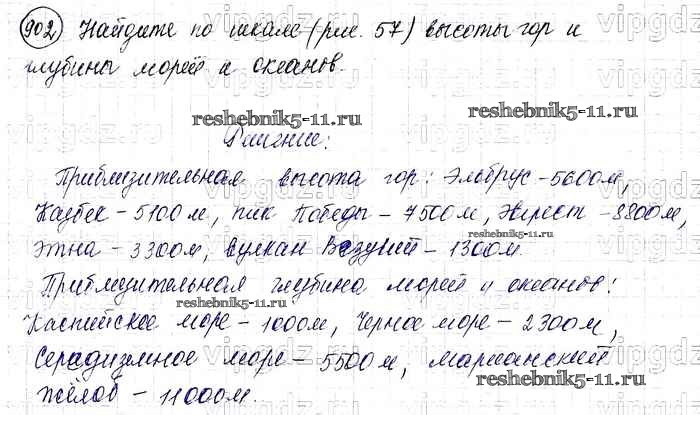 902 Найдите по шкале (рис. 57) высоты гор и
глубины морей и океанов.
reshebnik5-11.ru reshebnik5-11.ru
Решение:
Приблизительная высота гор: Эльбрус - 5600м,
Казбек - 5100м, пик Победы - 7500м, Эверест - 8800м,
reshebnik5-11.ru
Этна - 3300м, вулкан Везувий - 1300м.
Приблизительная глубина морей и океанов:
reshebnik5-11.ru
Каспийское море - 1000м, Черное море - 2300м,
Середиземное море - 5500м, марианский
reshebnik5-11.ru
жёлоб - 11000м.